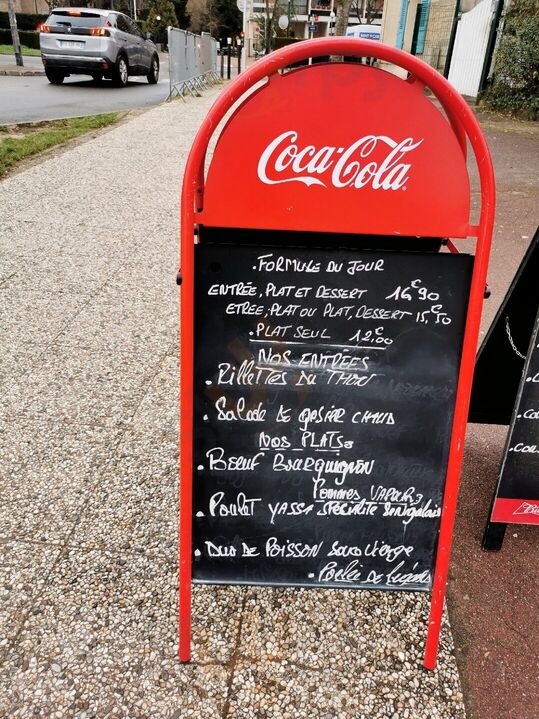 Coca-Cola
.FORMULE DU JOUR
ENTRÉE, PLAT ET DESSERT 16€90
ETRÉE, PLAT OU PLAT, DESSERT 15,€50
.PLAT SEUL 12€,00
NOS ENTRÉES
.Rillettes du THON
.Salade de gésier chaud
NOS PLATS
.Bœuf Bourguignon
Pommes VAPEURS
.Poulet YASSA spécialité Sénégalais
.Duo de Poisson Sauce Vierge
.Poêlée de légumes